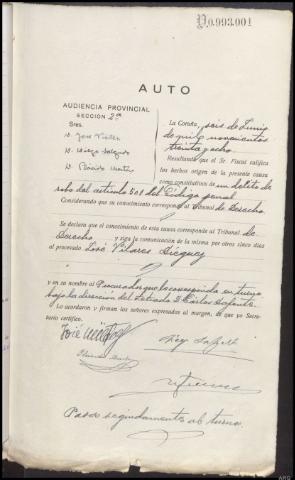 P.0.993.001
AUTO
AUDIENCIA PROVINCIAL
SECCIÓN 2ª
Sres.
D. José
D. Diego Salgado
D. Plácido
La Coruña, seis de Junio
de mil novecientos
treinta y ocho.
Resultando que el Sr. Fiscal califica
los hechos origen de la presente causa
como constitutivos de un delito de
robo del artículo 501 del Código penal
Considerando que su conocimiento corresponde al Tribunal de Derecho
Se declara que el conocimiento de esta causa corresponde al Tribunal de
Derecho y siga la comunicación de la misma por otros cinco días
al procesado José Vilares
y en su nombre al Procurador que le corresponda en turno
bajo la dirección del Letrado D. Carlos
Lo acordaron y firman los señores expresados al margen, de que yo Secre-
tario certifico.
José
Pasado seguidamente al turno.
ARG